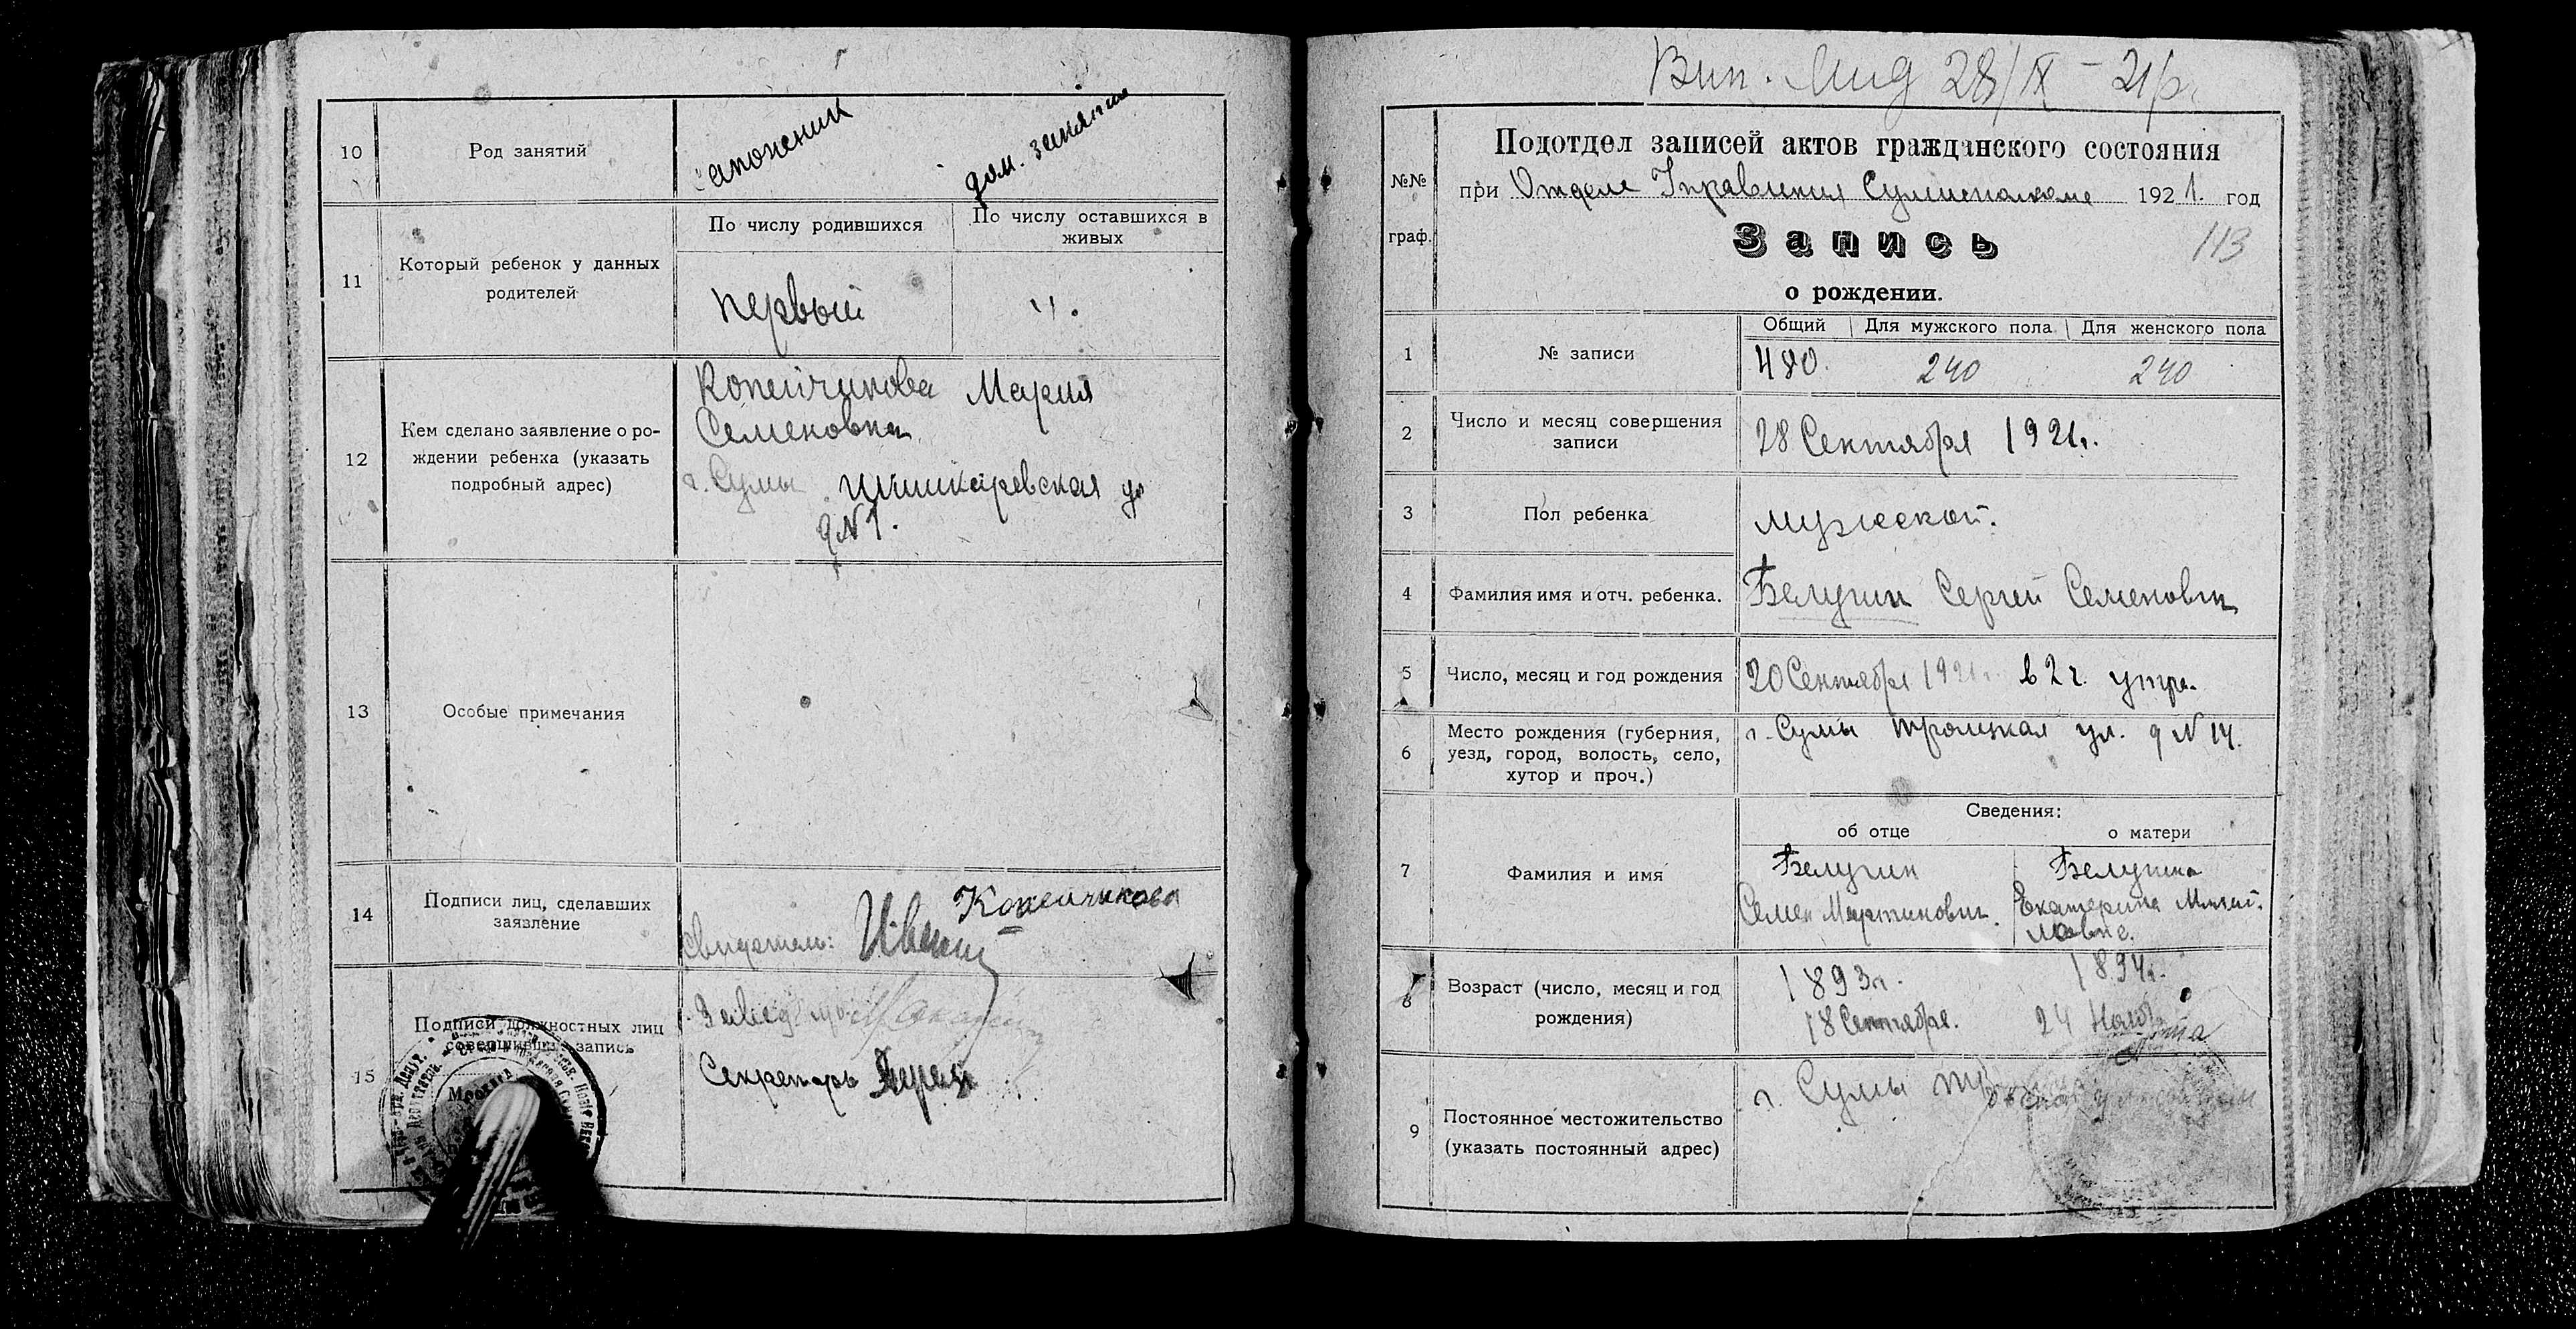 10
Род занятий
сапожник
дом. занятия
11
Который ребенок у данных
родителей
По числу родившихся
По числу оставшихся в
живых
первый
"
12
Кем сделано заявление о ро-
ждении ребенка (указать
подробный адрес)
Копейчикова Мария
Семеновна
г. Сумы Шишкаревская ул
д N 1.
13
Особые примечания
14
Подписи лиц, сделавших
заявление
Копейчикова
свидетель:
15
Подписи должностных лиц
совершивших запись
Секретарь
Вип. Мид 28/IX - 21р.
№№
граф.
Подотдел записей актов гражданского состояния
при Отделе Управления Сумисполкома 1921. год
Запись
113
о рождении.
1
№ записи
Общий
Для мужского пола
Для женского пола
480.
240
240
2
Число и месяц совершения
записи
28 Сентября 1921г.
3
Пол ребенка
мужской.
4
Фамилия имя и отч. ребенка.
Белугин Сергей Семенович
5
Число, месяц и год рождения
20 Сентября 1921г. в 2 ч. утра.
6
Место рождения (губерния,
уезд, город, волость, село,
хутор и проч.)
г. Сумы Троицкая ул. д N 14.
Сведения:
об отце
о матери
7
Фамилия и имя
Белугин
Семен Мартинович.
Белугина
Екатерина
8
Возраст (число, месяц и год
рождения)
1893г.
18 Сентября.
1894г.
24 Нояб
9
Постоянное местожительство
(указать постоянный адрес)
г. Сумы